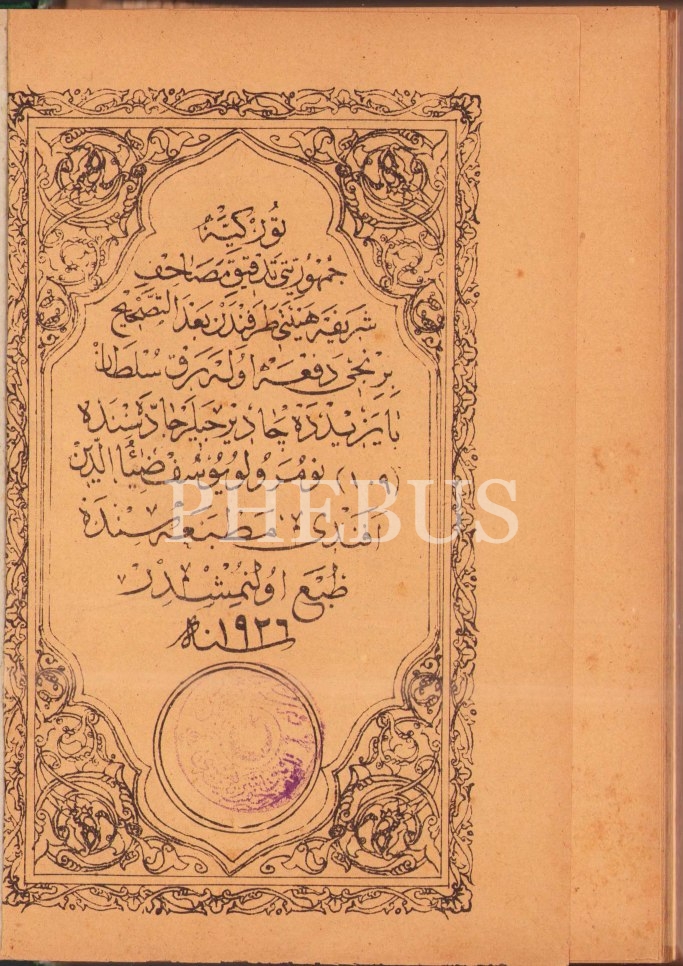 توركيه
جمهوريتى تدقيق مصاحف
شريفه هيئتى طرفندن بعد التصحيح
برنجى دفعه اوله رق سلطان
بايزيدده چاديرجيلر جاده سنده
(١٠٩) نومرولو يوسف ضيا الدين
افندى مطبعه سنده
طبع اولنمشدر
سنه ١٩٢٦
PHEBUS